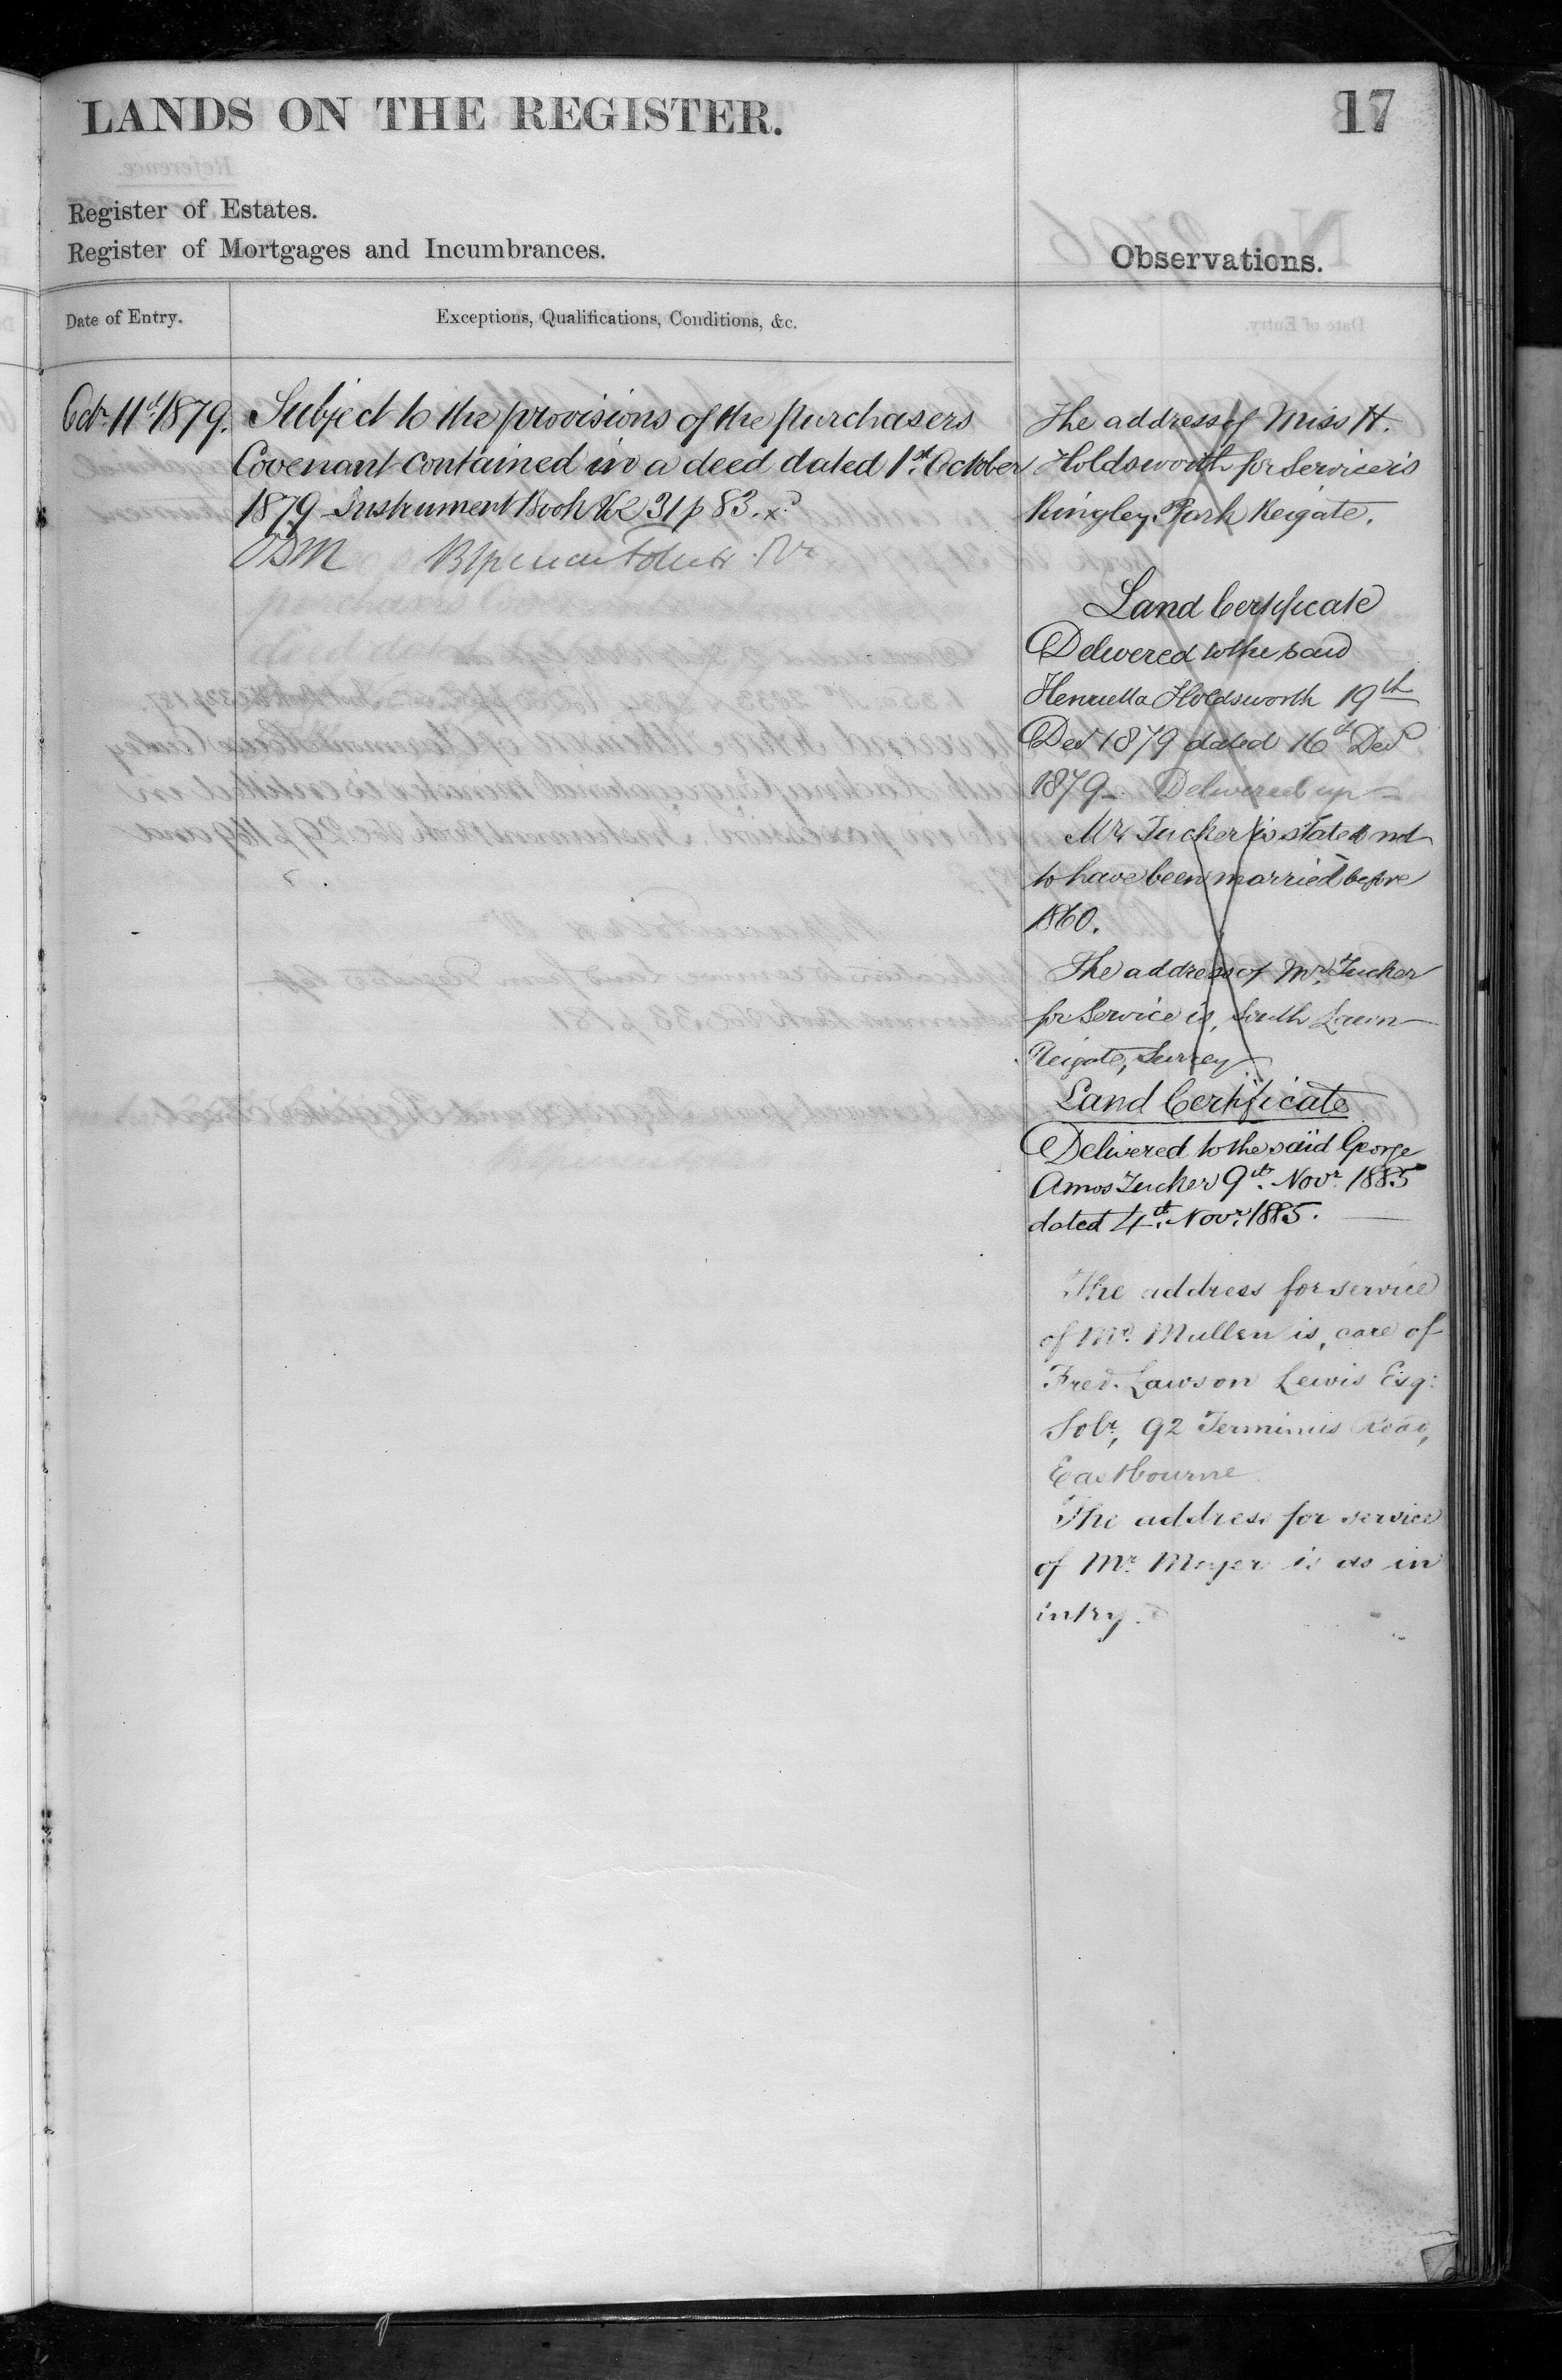 LANDS ON THE REGISTER.
17
Register of Estates.
Register of Mortgages and Incumbrances.
Observations.
Date of Entry.
Exceptions, Qualifications, Conditions, &c.
Octr. 11th 1879.
Subject to the provisions of the purchasers
Covenant contained in a deed dated 1st October
1879 Instrument Book Vol 31 p 83.
The address of Miss H.
Holdsworth for Service is
Ringley Park Reigate.
Land Certificate
Delivered to the said
Henrietta Holdsworth 19th
Decr 1879 dated 16th Decr
1879 – Delivered up –
Mr Tucker is stated not
to have been married before
1860.
The address of Mr. Tucker
for Service is, South Lawn
Reigate, Surrey
Land Certificate
Delivered to the said George
Amos Tucker 9th. Novr. 1885
dated 4th. Novr. 1885.
The address for service
of Mr. Mullen is, care of
Fred. Lawson Lewis Esq:
Solr, 92 Terminus Road,
Eastbourne
The address for service
of Mr. Meyer is as in
entry.